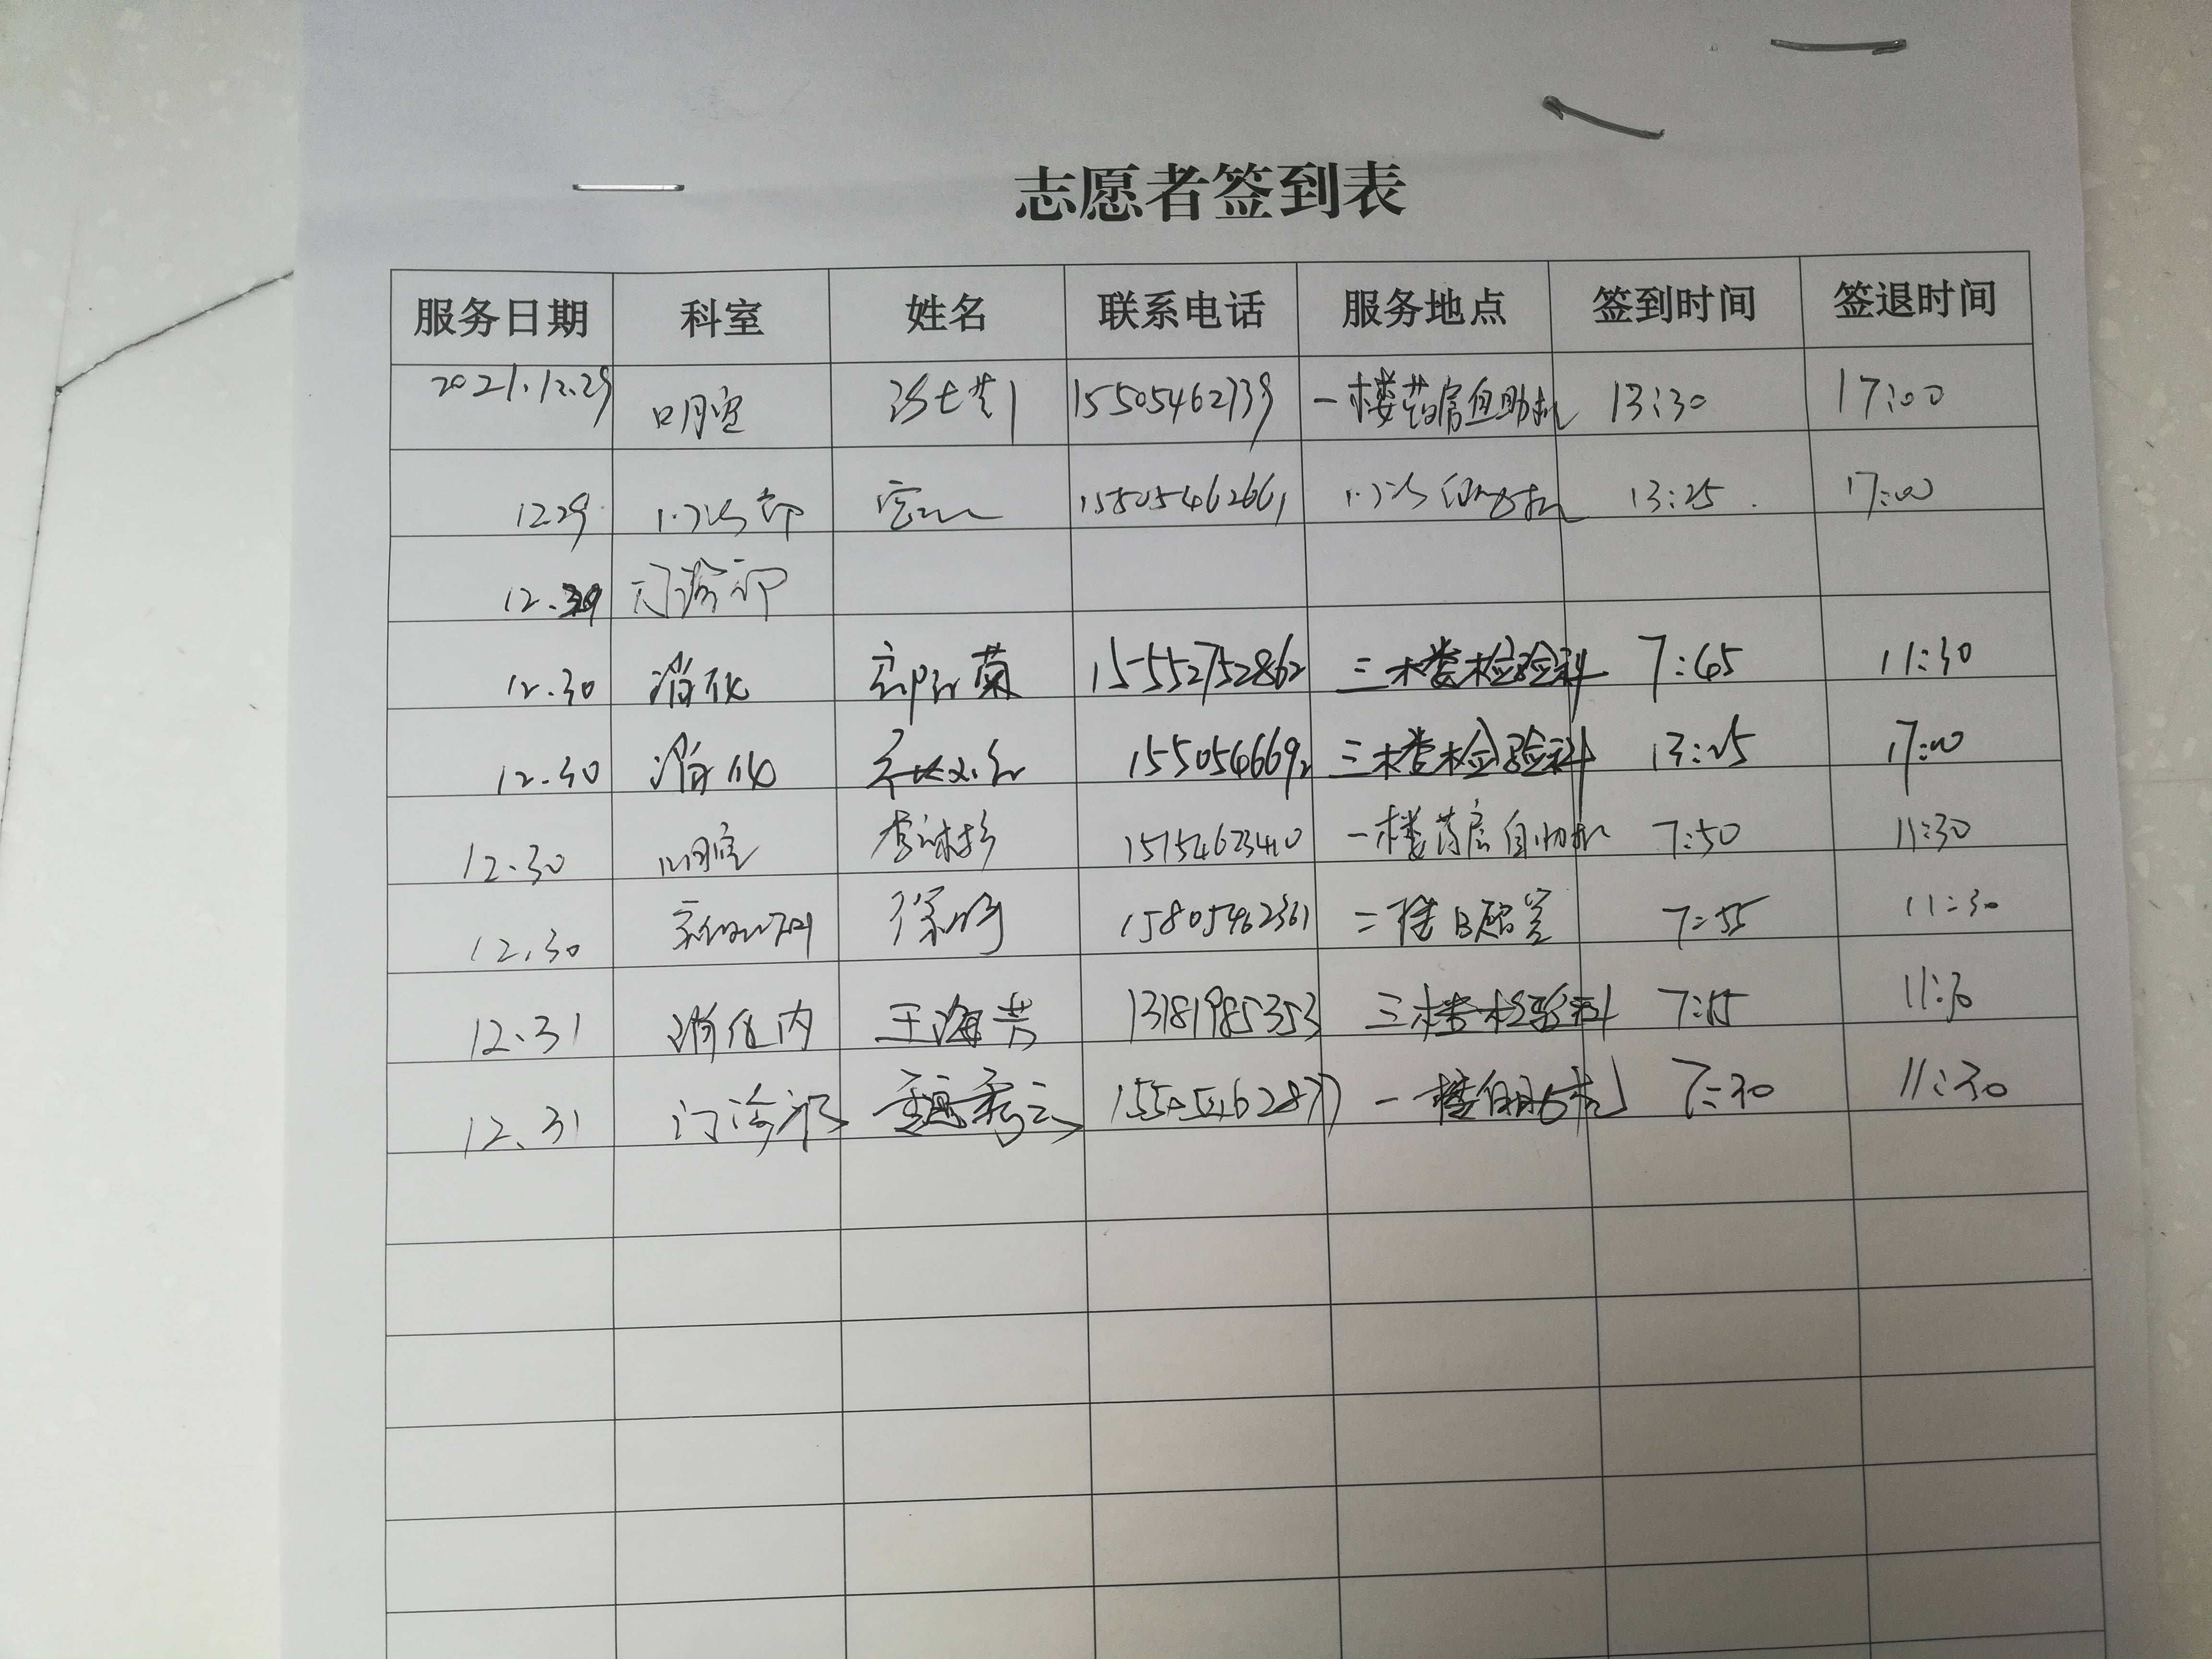 志愿者签到表
服务日期 科室 姓名 联系电话 服务地点 签到时间 签退时间
2021.12.29 口腔 15505462739 一楼药房自助机 13:30 17:00
12.29 门诊部 15505462661 门诊 13:25 17:00
12.29 门诊部
12.30 消化 15552752862 三楼检验科 7:45 11:30
12.30 消化 三楼检验科 13:25 17:00
12.30 口腔 一楼药房自助机 7:50 11:30
12.30 徐 15805462361 二楼 7:55 11:30
12.31 消化内 王海芳 13181985353 三楼检验科 7:15 11:30
12.31 门诊部 一楼自助机 7:30 11:30